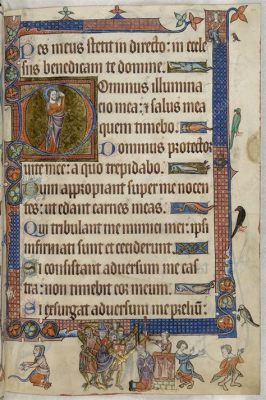 Pes meus stetit in directo: in eccle
siis benedicam te domine.
Dominus illumina
cio mea: et salus mea
quem timebo.
Dominus protector
vite mee: a quo trepidabo.
Dum appropiant super me nocen
tes: ut edant carnes meas.
Qui tribulant me inimici mei: ipsi
infirmati sunt et ceciderunt.
Si consistant adversum me cas
tra: non timebit cor meum.
Si exsurgat adversum me prelium: